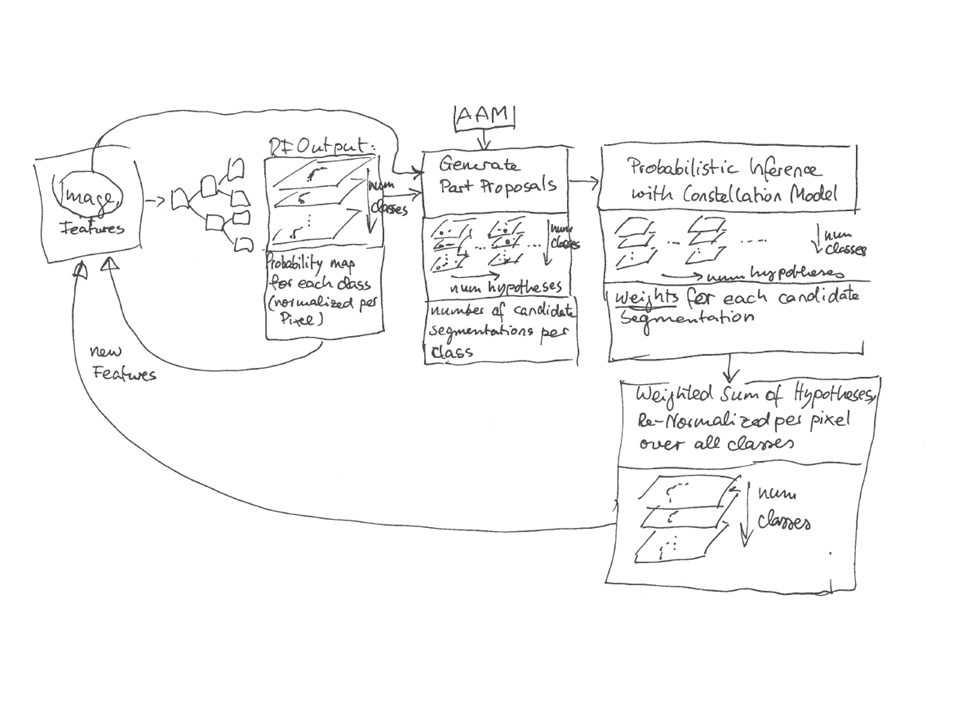 Image,
Features
RF Output:
num
classes
Probability map
for each class
(normalized per
Pixel)
new
Features
AAM
Generate
Part Proposals
num
classes
num hypotheses
number of candidate
segmentations per
class
Probabilistic Inference
with Constellation Model
num
classes
num hypotheses
weights for each candidate
Segmentation
Weighted Sum of Hypotheses,
Re-Normalized per pixel
over all classes
num
classes